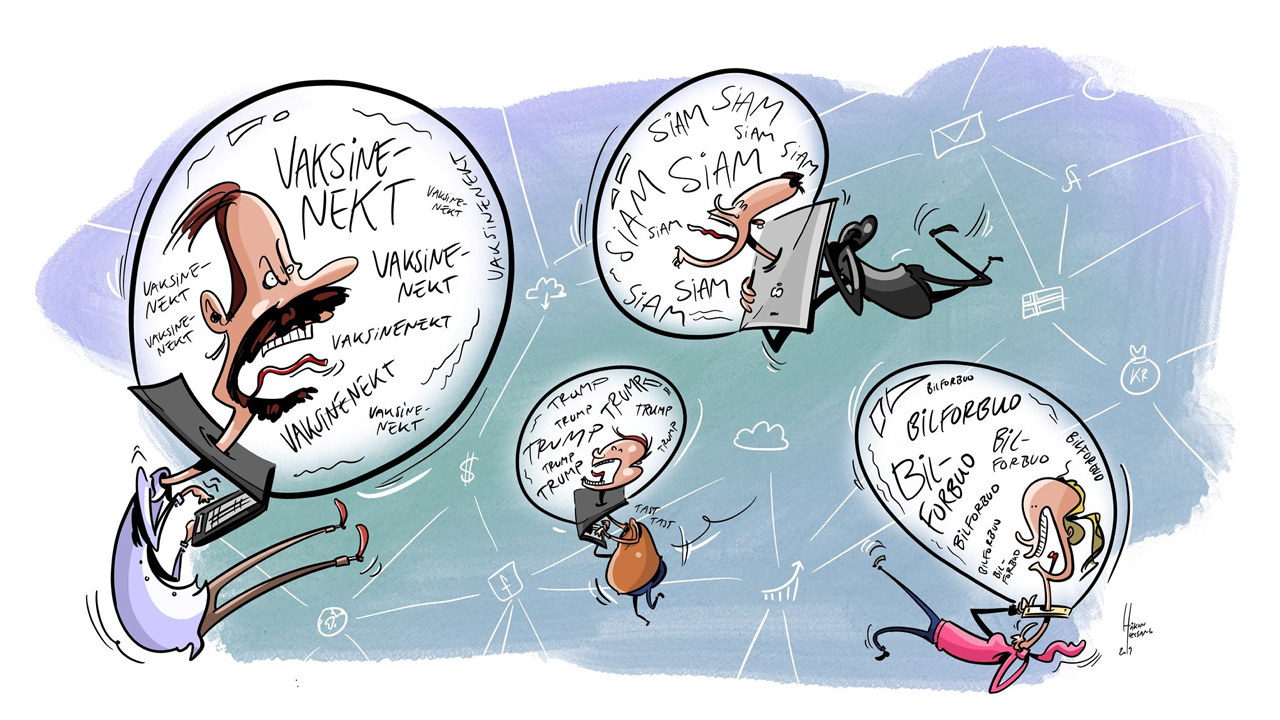 VAKSINE-
NEKT
VAKSINE-
NEKT
VAKSINENEKT
VAKSINE-
NEKT
VAKSINE-
NEKT
VAKSINE-
NEKT
VAKSINENEKT
VAKSINENEKT
VAKSINE-
NEKT
SIAM
SIAM
SIAM
SIAM
SIAM
SIAM
SIAM
SIAM
SIAM
SIAM
TRUMP
TRUMP
TRUMP
TRUMP
TRUMP
TRUMP
TRUMP
TRUMP
TAST
TAST
BILFORBUD
BILFORBUD
BIL-
FORBUD
BIL-
FORBUD
BILFORBUD
BILFORBUD
BILFORBUD
BIL-
FORBUD
$
f
KR